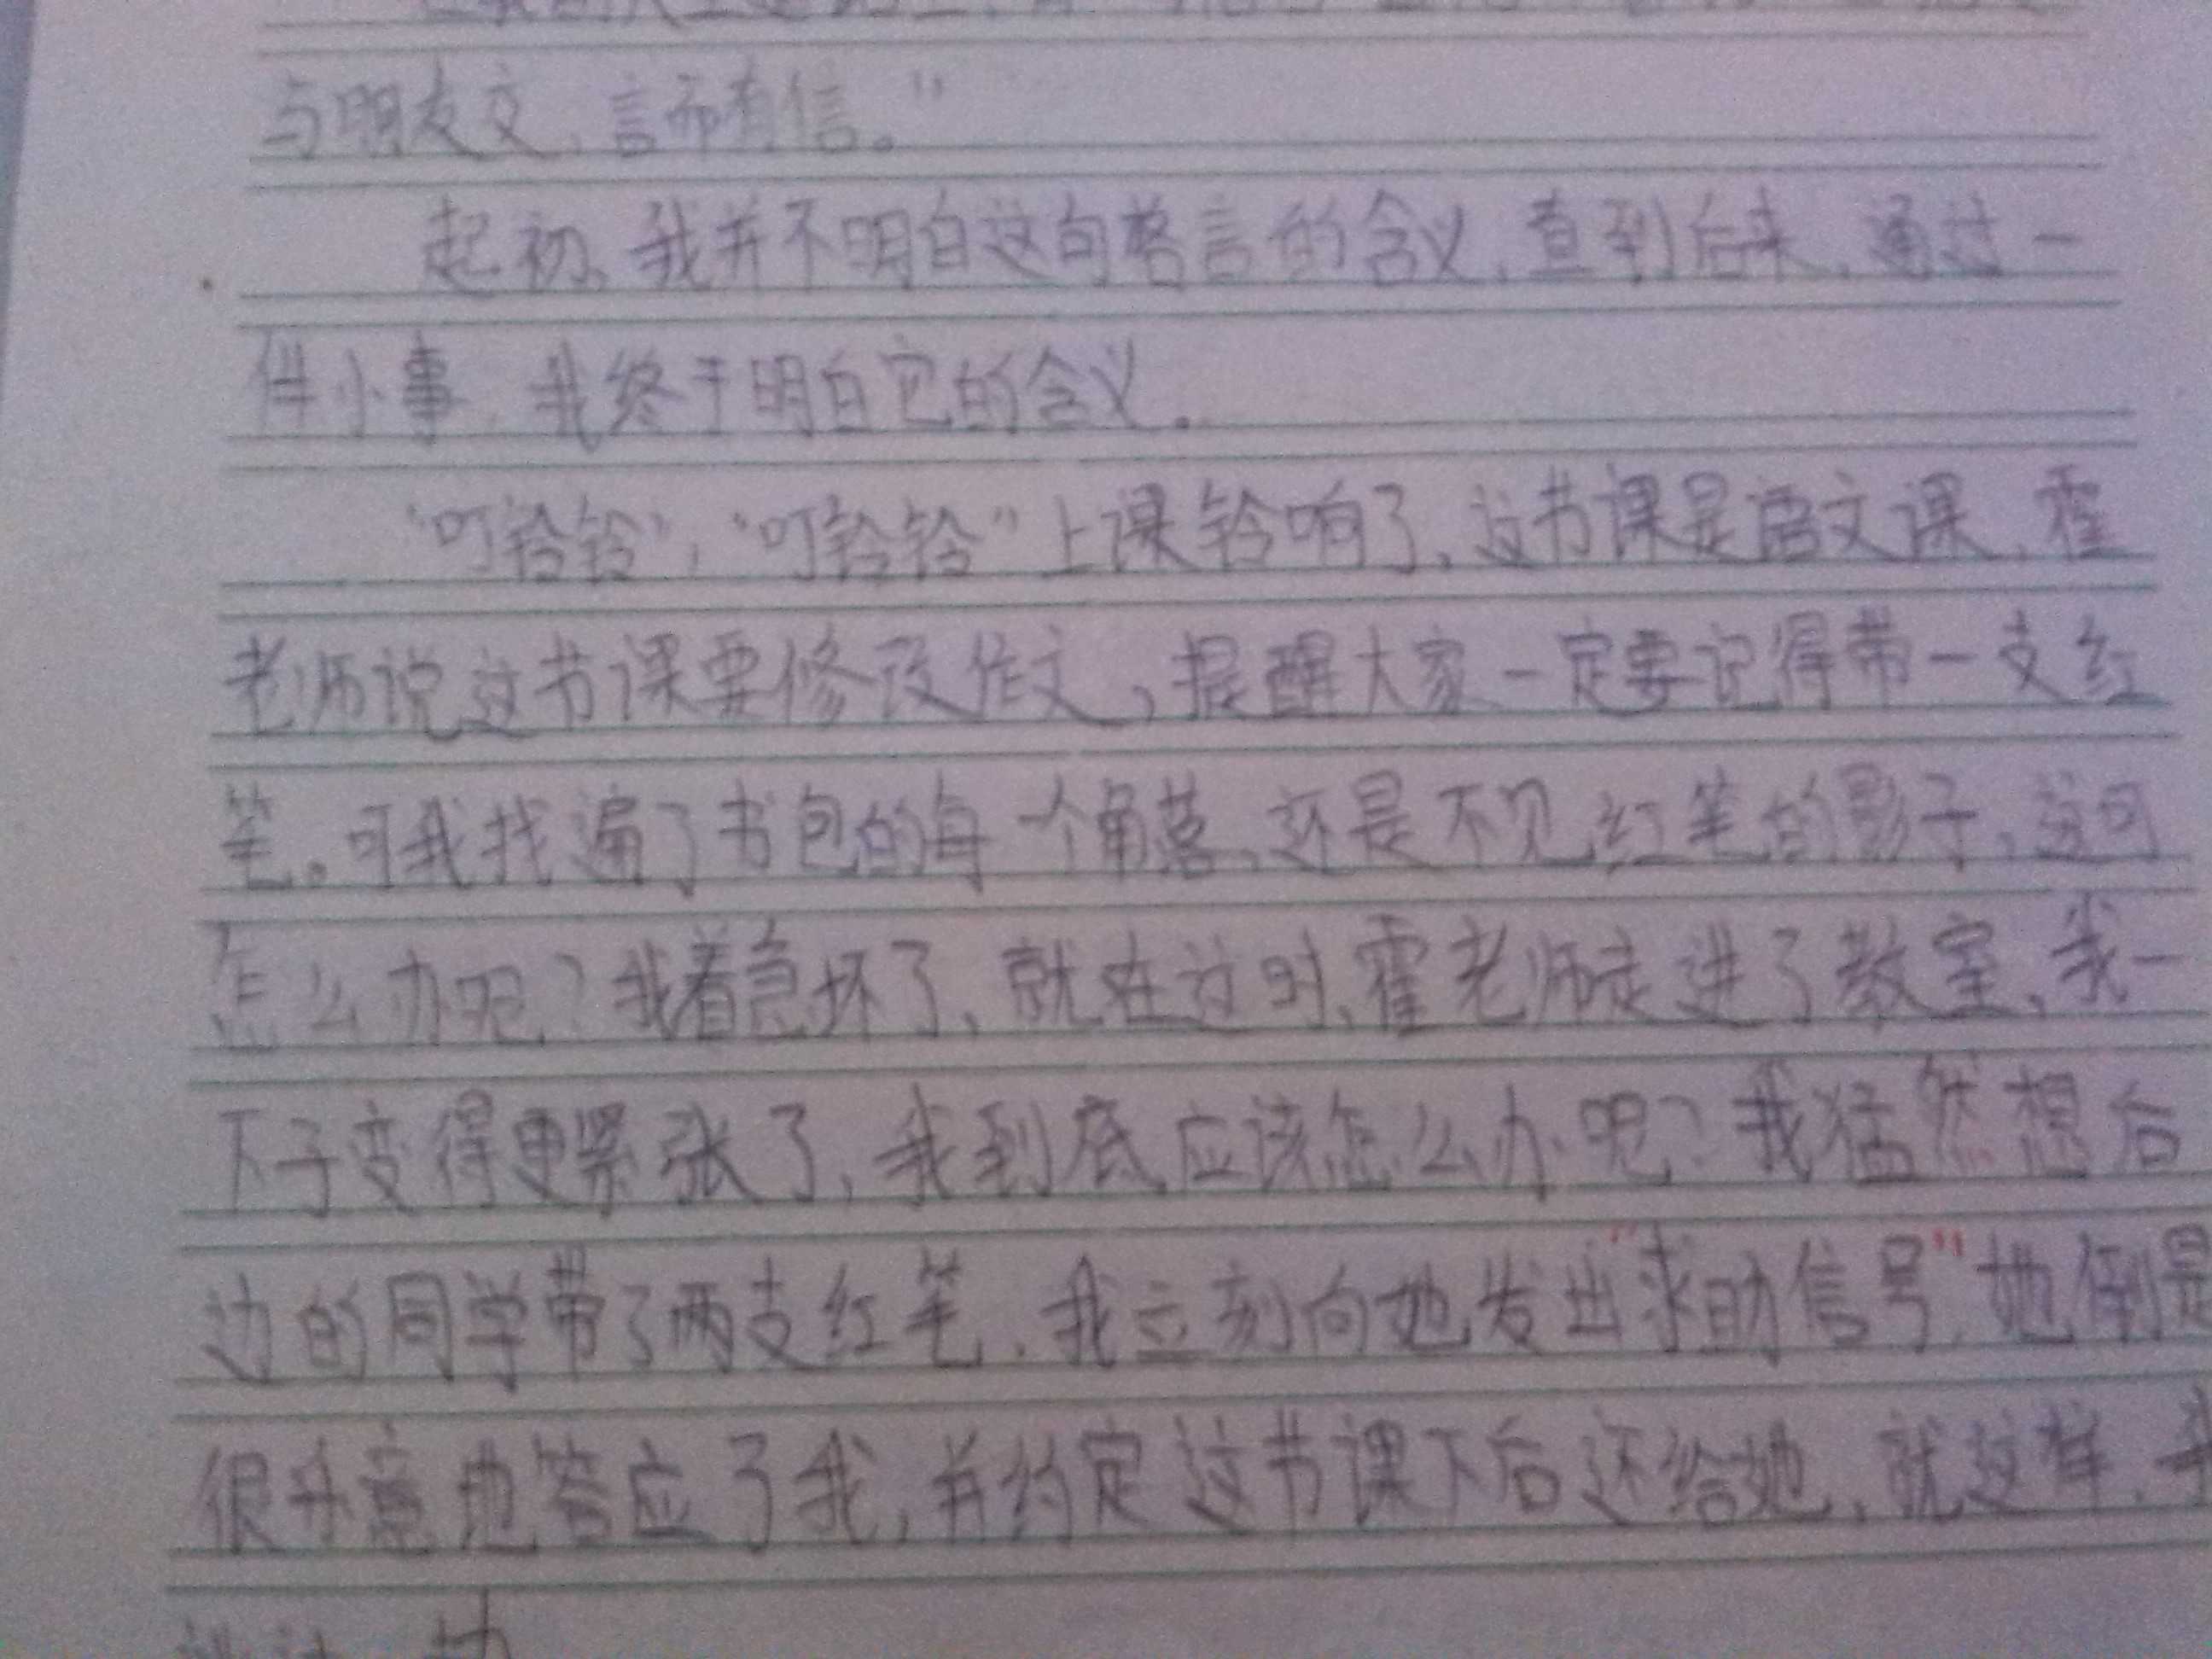 与朋友交，言而有信。”
起初，我并不明白这句格言的含义，直到后来，通过一
件小事，我终于明白它的含义。
“叮铃铃”，“叮铃铃”上课铃响了，这节课是语文课，霍
老师说这节课要修改作文，提醒大家一定要记得带一支红
笔。可我找遍了书包的每一个角落，还是不见红笔的影子，这可
怎么办呢？我着急坏了，就在这时，霍老师走进了教室，我一
下子变得更紧张了，我到底应该怎么办呢？我猛然想后
边的同学带了两支红笔，我立刻向她发出“求助信号”，她倒是
很乐意地答应了我，并约定这节课下后还给她，就这样，我